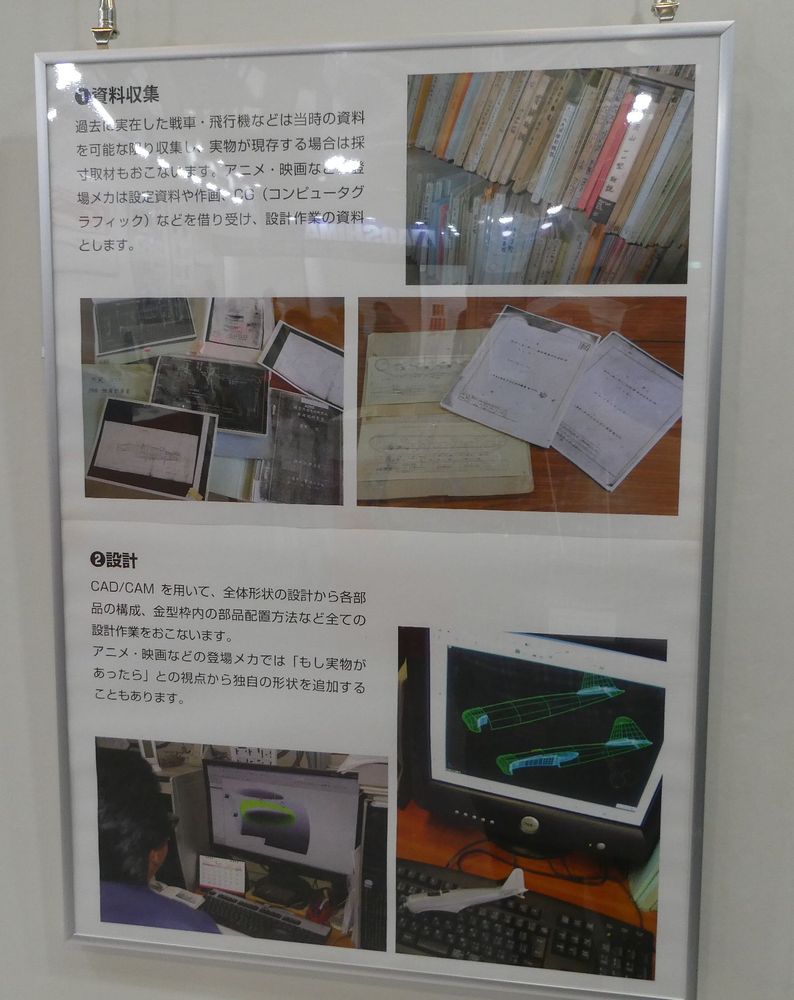 ❶資料収集
過去に実在した戦車・飛行機などは当時の資料
を可能な限り収集し、実物が現存する場合は採
寸取材もおこないます。アニメ・映画などの登
場メカは設定資料や作画、CG（コンピュータグ
ラフィック）などを借り受け、設計作業の資料
とします。
❷設計
CAD/CAM を用いて、全体形状の設計から各部
品の構成、金型枠内の部品配置方法など全ての
設計作業をおこないます。
アニメ・映画などの登場メカでは「もし実物が
あったら」との視点から独自の形状を追加する
こともあります。